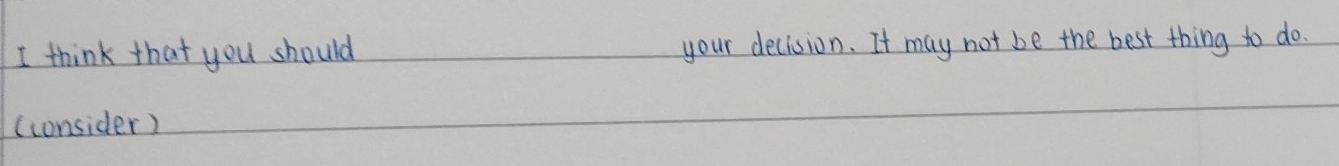 I think that you should your decision. It may not be the best thing to do.
(consider)